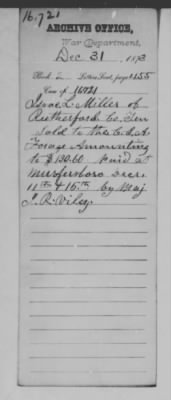 16.721
ARCHIVE OFFICE,
War Department,
Dec 31 1873
Book 2 Letters Sent, page 455
Case of 16721
Isaac L. Miller of
Rutherford Co. Ten
Sold to the C.S.A.
Forage Amounting
to $130.60 Paid at
Murfersboro Decr.
11th & 16th by Maj
J. R. Viley.